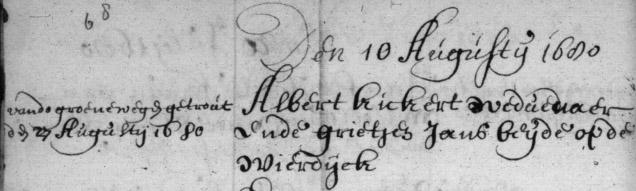 68
Den 10 Augusty 1680
vando groeneweg getrout
den 27 Augusty 1680
Albert kickert weduenaer
ende grietjes Jans beyde op de
Wierdyck